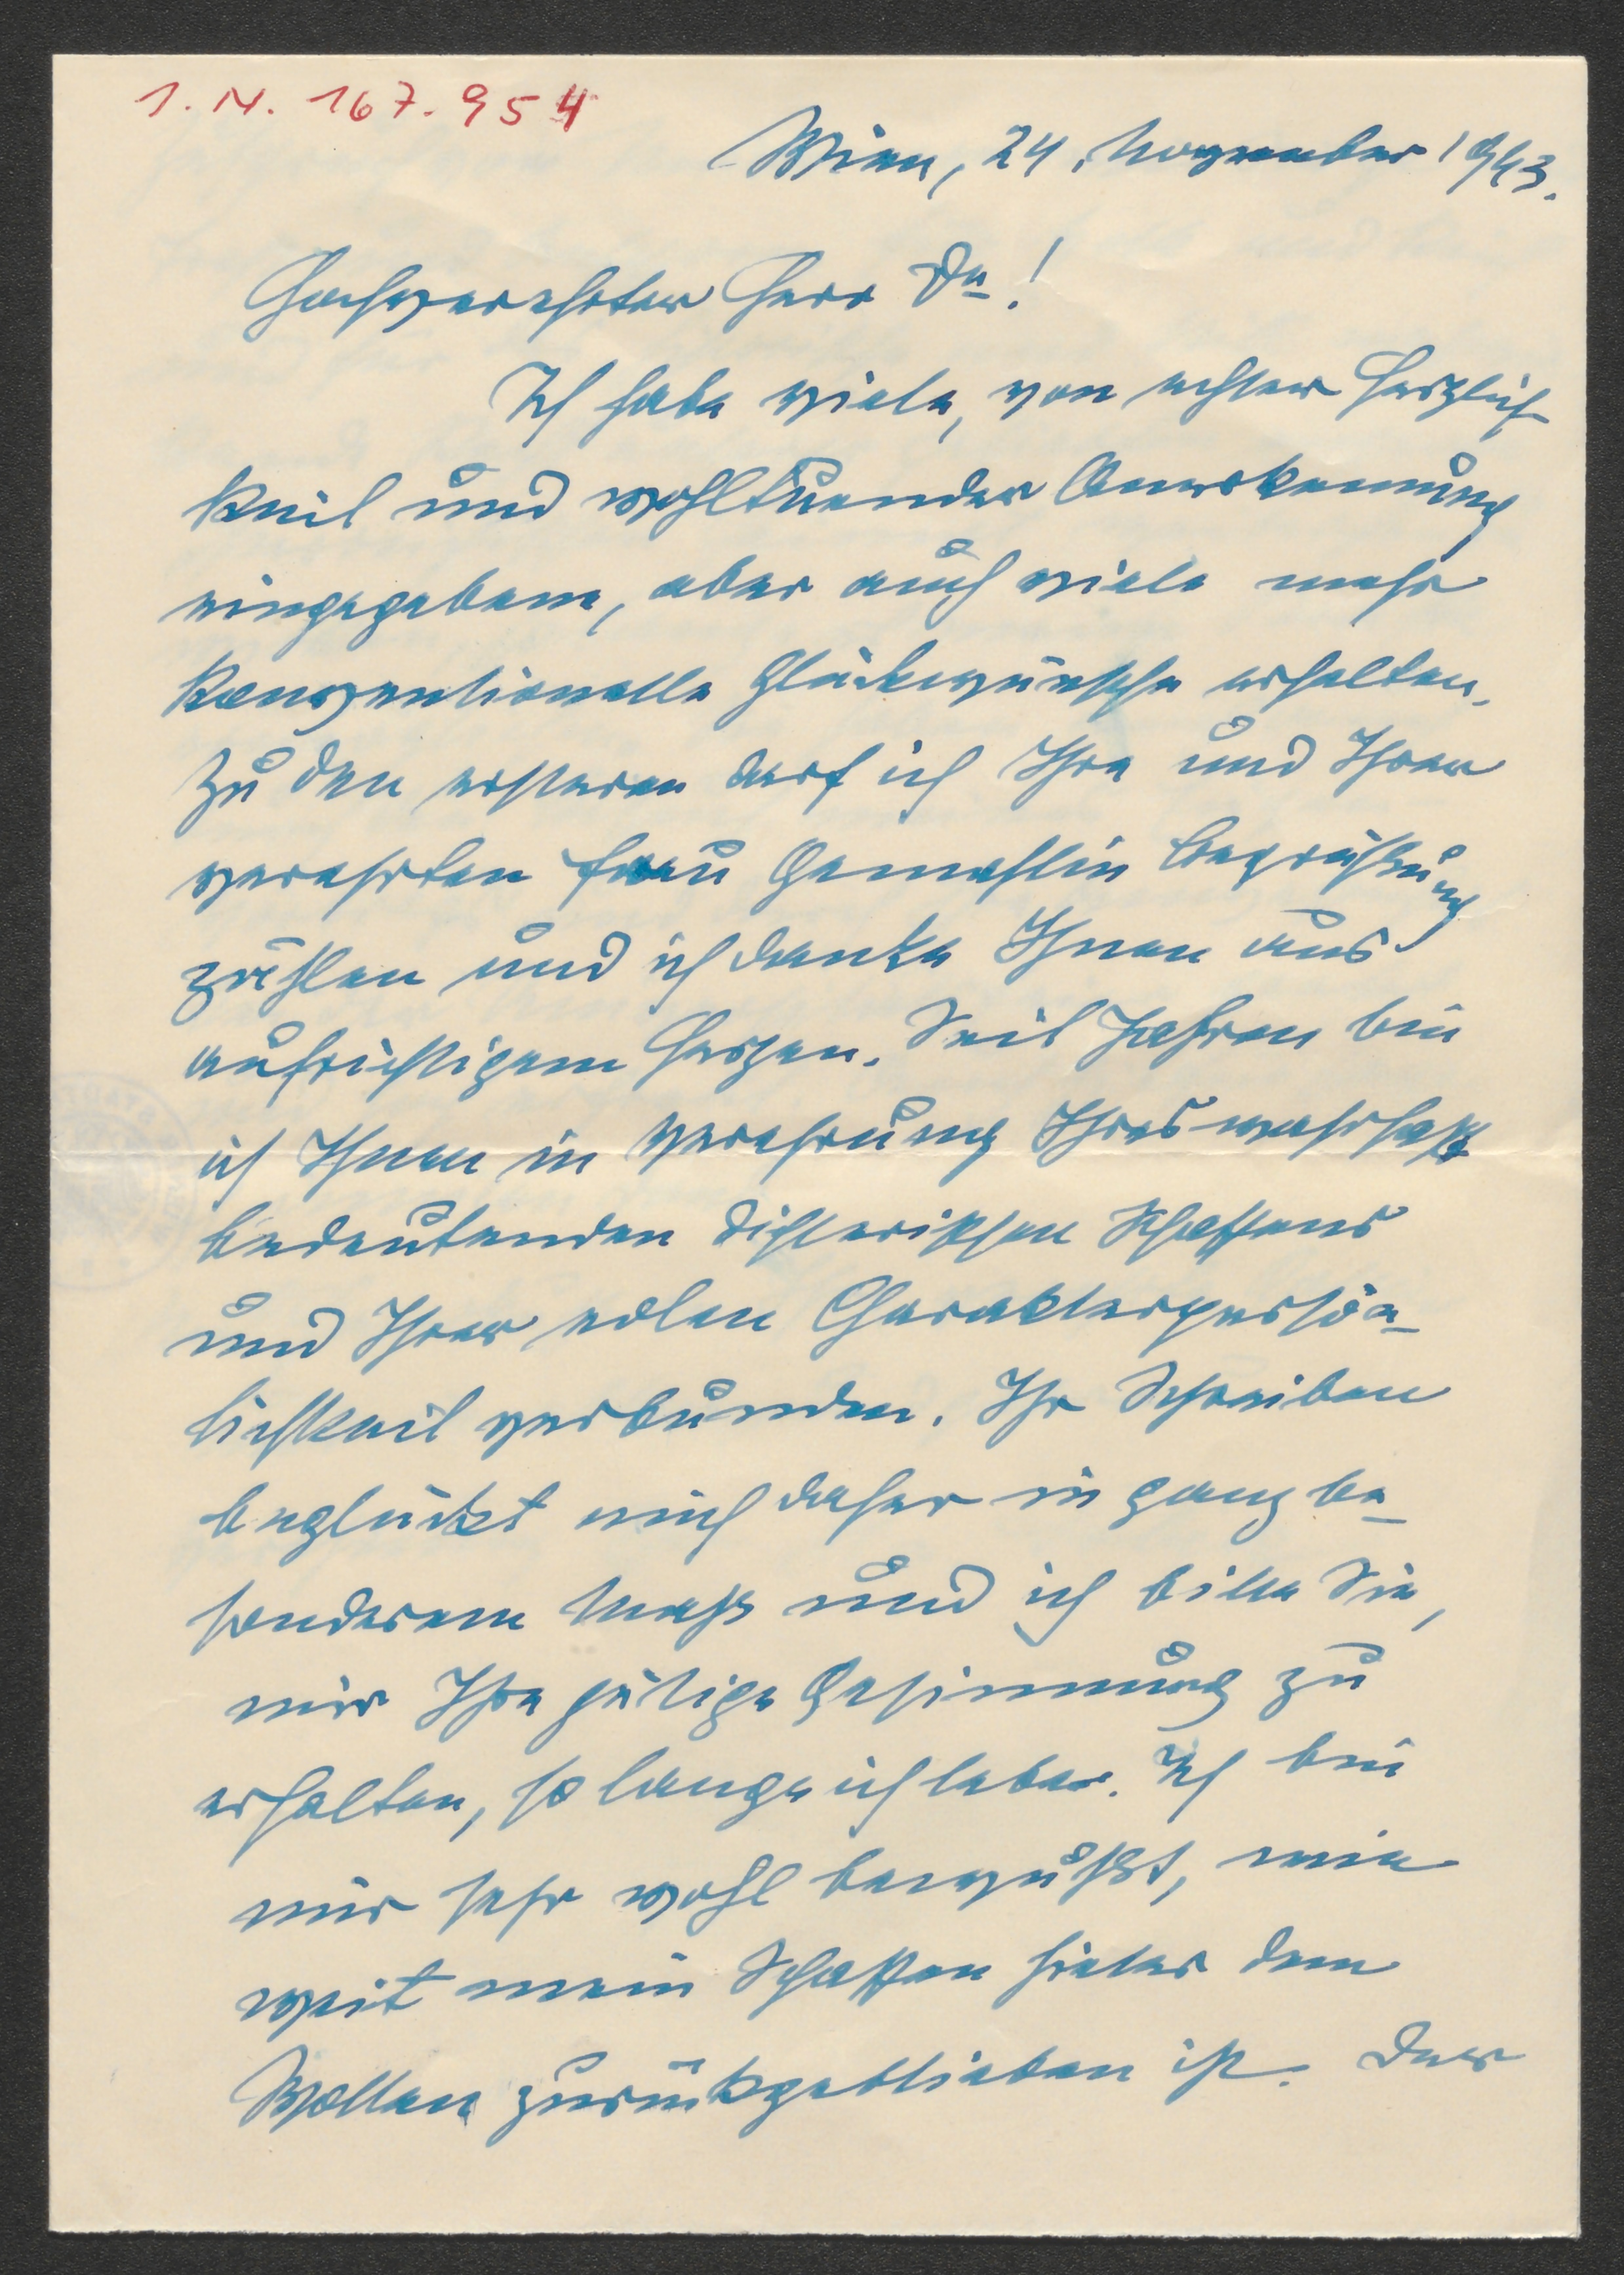 I.N. 167.954
Wien, 24. November 1943.
Hochverehrter Herr Dr!
Ich habe viele, von echter Herzlich-
keit und wohltuender Anerkennung
eingegebene, aber auch viele mehr
konventionelle Glückwünsche erhalten.
Zu den ersteren darf ich Ihre und Ihrer
verehrten Frau Gemahlin Begrüßung
zählen und ich danke Ihnen aus
aufrichtigem Herzen. Seit Jahren bin
ich Ihnen in Verehrung Ihres wahrhaft
bedeutenden dichterischen Schaffens
und Ihrer edlen Charakterpersön-
lichkeit verbunden. Ihr Schreiben
beglückt mich daher in ganz be-
sonderem Maß und ich bitte Sie,
mir Ihre gütige Gesinnung zu
erhalten, so lange ich lebe. Ich bin
mir sehr wohl bewußt, wie
weit mein Schaffen hinter dem
Wollen zurückgeblieben ist. Der